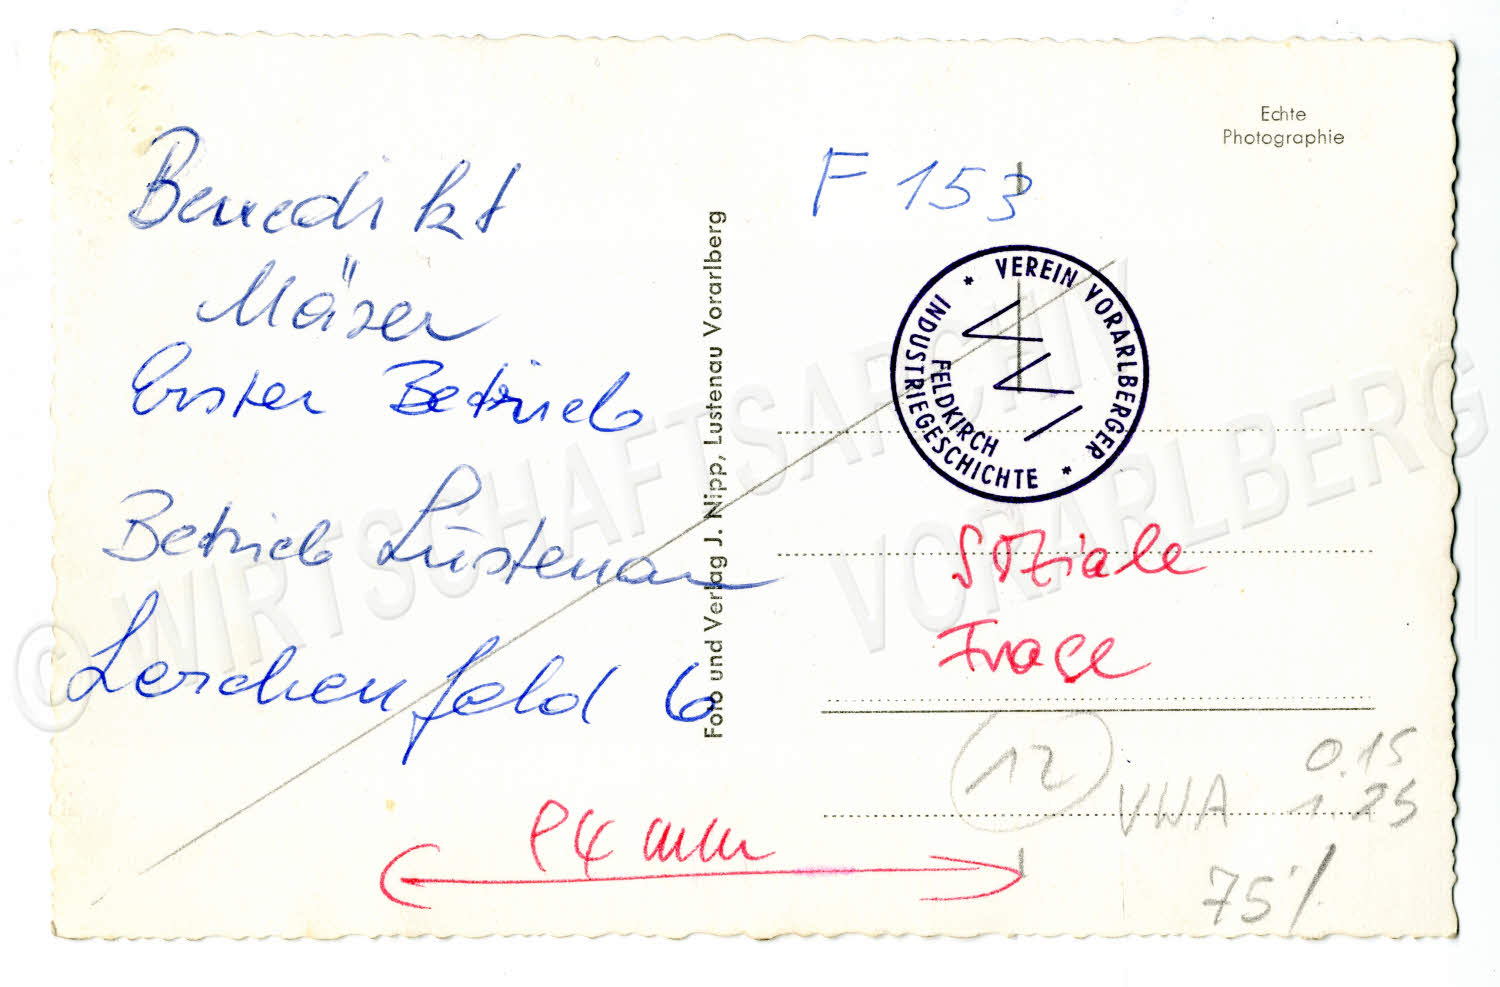 Echte
Photographie
Benedikt
Mäser
Erster Betrieb
Betrieb Lustenau
Lerchenfeld 6
Foto und Verlag J. Nipp, Lustenau Vorarlberg
F 153
* VEREIN VORARLBERGER * INDUSTRIEGESCHICHTE
FELDKIRCH
Soziale
Frage
12
VWA
0.15
1.25
75%
84 mm
© WIRTSCHAFTSARCHIV
VORARLBERG